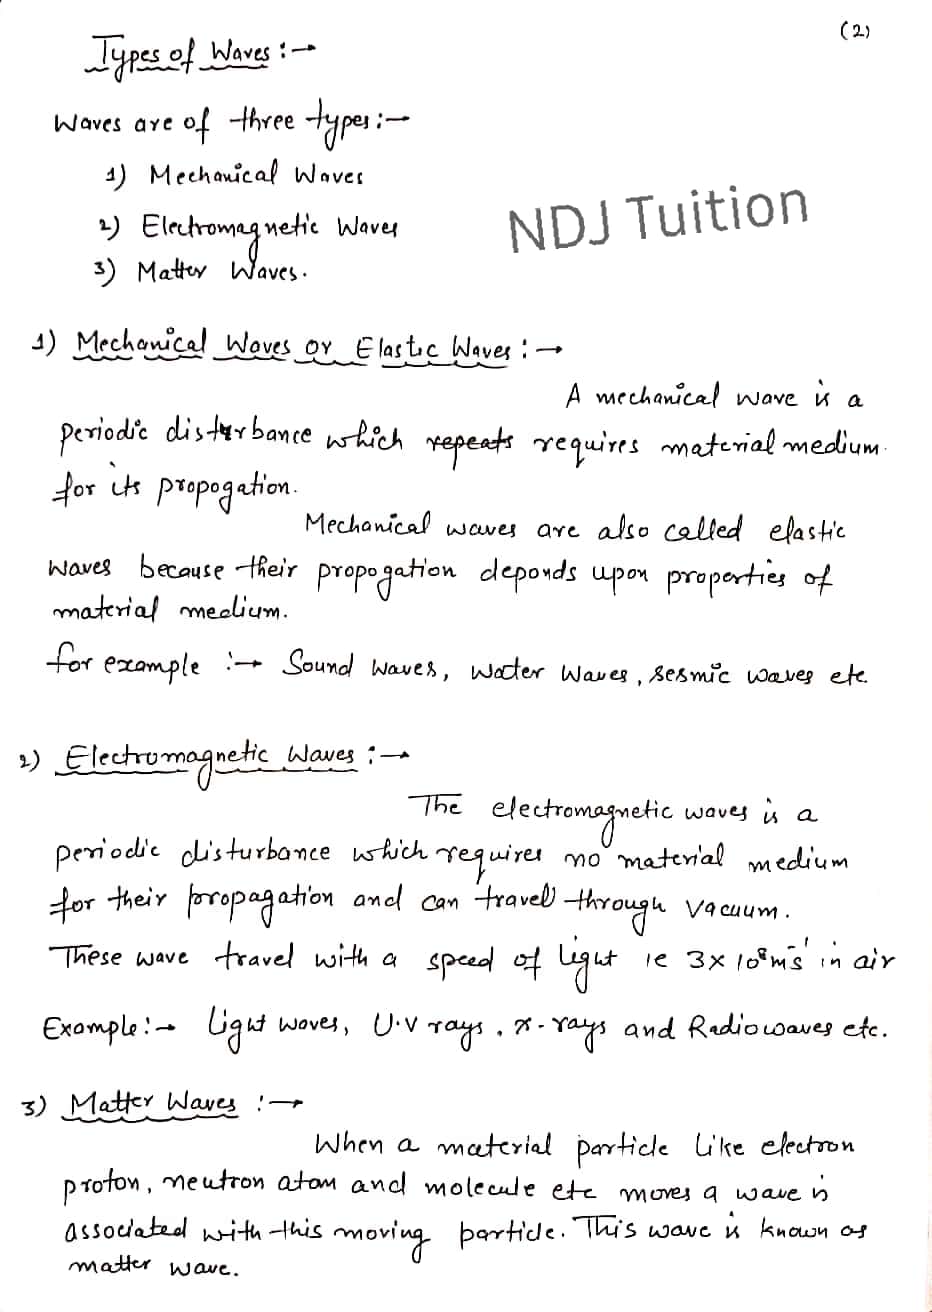 (2)
Types of Waves :→
Waves are of three types :→
1) Mechanical Waves
2) Electromagnetic Waves
3) Matter Waves.
NDJ Tuition
1) Mechanical Waves or Elastic Waves : →
A mechanical wave is a
periodic disturbance which repeats requires material medium.
for its propogation.
Mechanical waves are also called elastic
waves because their propogation deponds upon properties of
material medium.
for example :→ Sound waves, Water Waves, sesmic waves etc.
2) Electromagnetic Waves :→
The electromagnetic waves is a
periodic disturbance which requires no material medium
for their propagation and can travel through vacuum.
These wave travel with a speed of light ie 3×10⁸ms⁻¹ in air
Example :→ Light waves, U.V rays, x-rays and Radiowaves etc.
3) Matter Waves :→
When a material particle like electron
proton, neutron atom and molecule etc moves a wave is
associated with this moving particle. This wave is known as
matter wave.